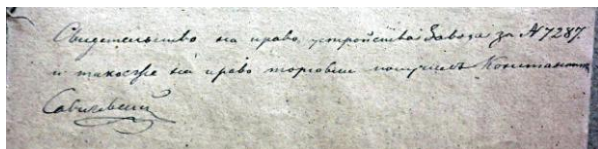 Свидетельство на право устройства Завода за № 7287
и такоеже на право торговли получилъ Константин
Савиковский